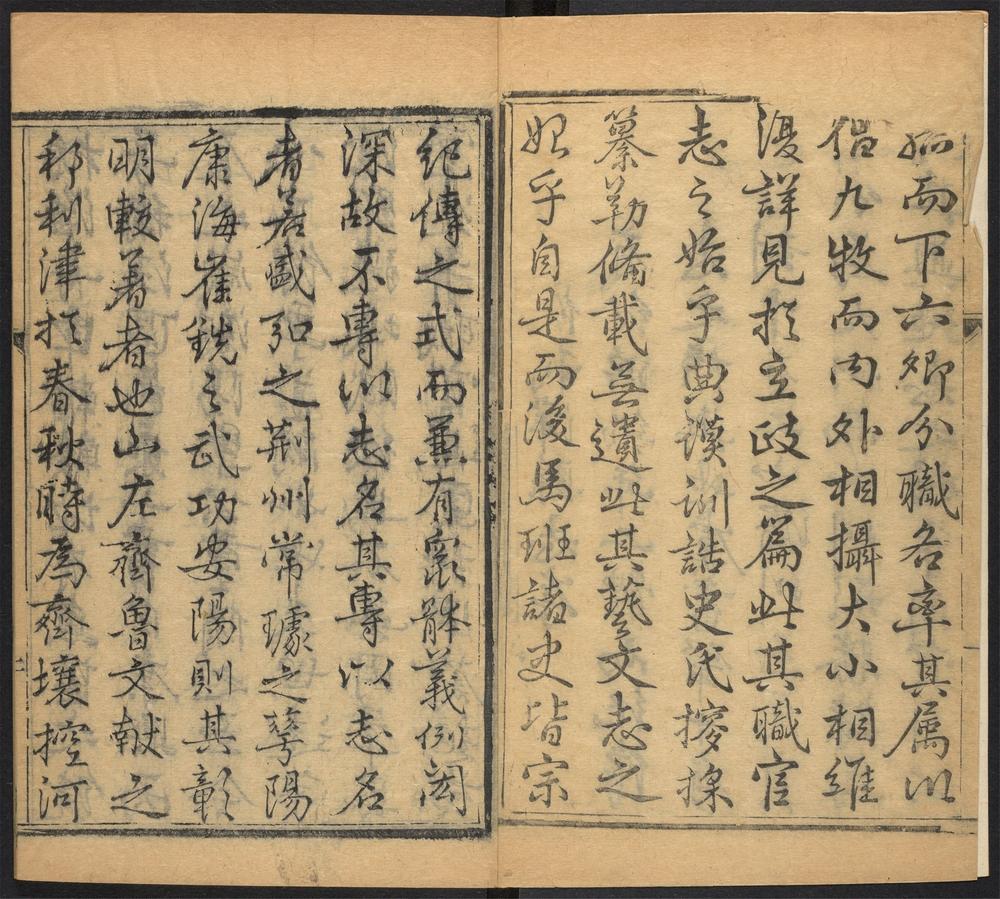 孤而下六卿分職各率其属以
倡九牧而内外相攝大小相維
漫詳見於立政之篇此其職官
志之始乎典謨訓誥史氏採
纂勒俻載無遺此其藝文志之
始乎自是而後馬班諸史皆宗
紀傳之式而兼有衆體義例閎
深故不專以志名其專以志名
者若盛弘之荆州常璩之華陽
康海崔銑之武功安陽則其彰
明較著者也山左齊魯文献之
邦利津於春秋時為齊壤控河